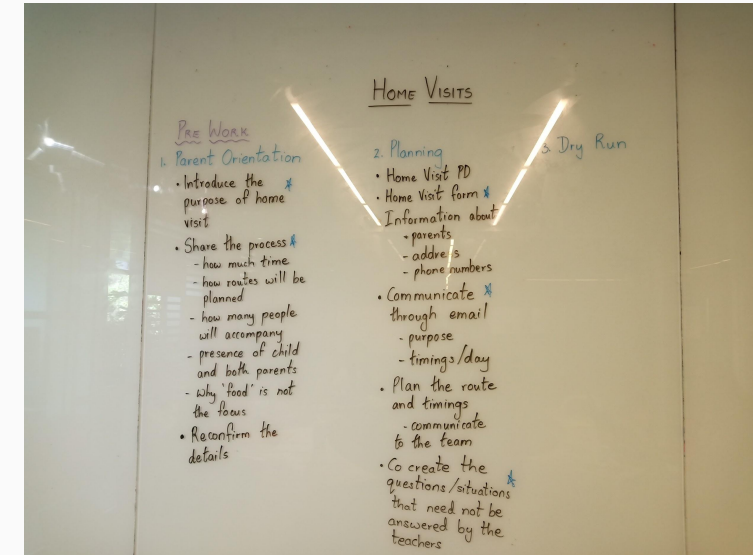 HOME VISITS
PRE WORK
1. Parent Orientation
• Introduce the
purpose of home
visit
• Share the process
- how much time
- how routes will be
planned
- how many people
will accompany
- presence of child
and both parents
- Why 'food' is not
the focus
• Reconfirm the
details
2. Planning
• Home Visit PD
• Home Visit form
Information about
- parents
- address
- phone numbers
• Communicate
through email
- purpose
- timings/day
• Plan the route
and timings
- communicate
to the team
• Co create the
questions/situations
that need not be
answered by the
teachers
3. Dry Run